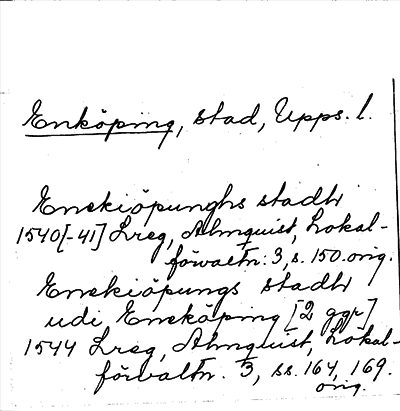 Enköping, stad, Upps. l.
Enekiöpunghs stadh
1540[-41] Lreg, Almquist, Lokal-
förvaltn: 3, s. 150. orig.
Enekiöpungs stadh
udi Eneköping [2 ggr]
1544 Lreg, Almquist, Lokal-
förvaltn. 3, ss. 164, 169.
orig.